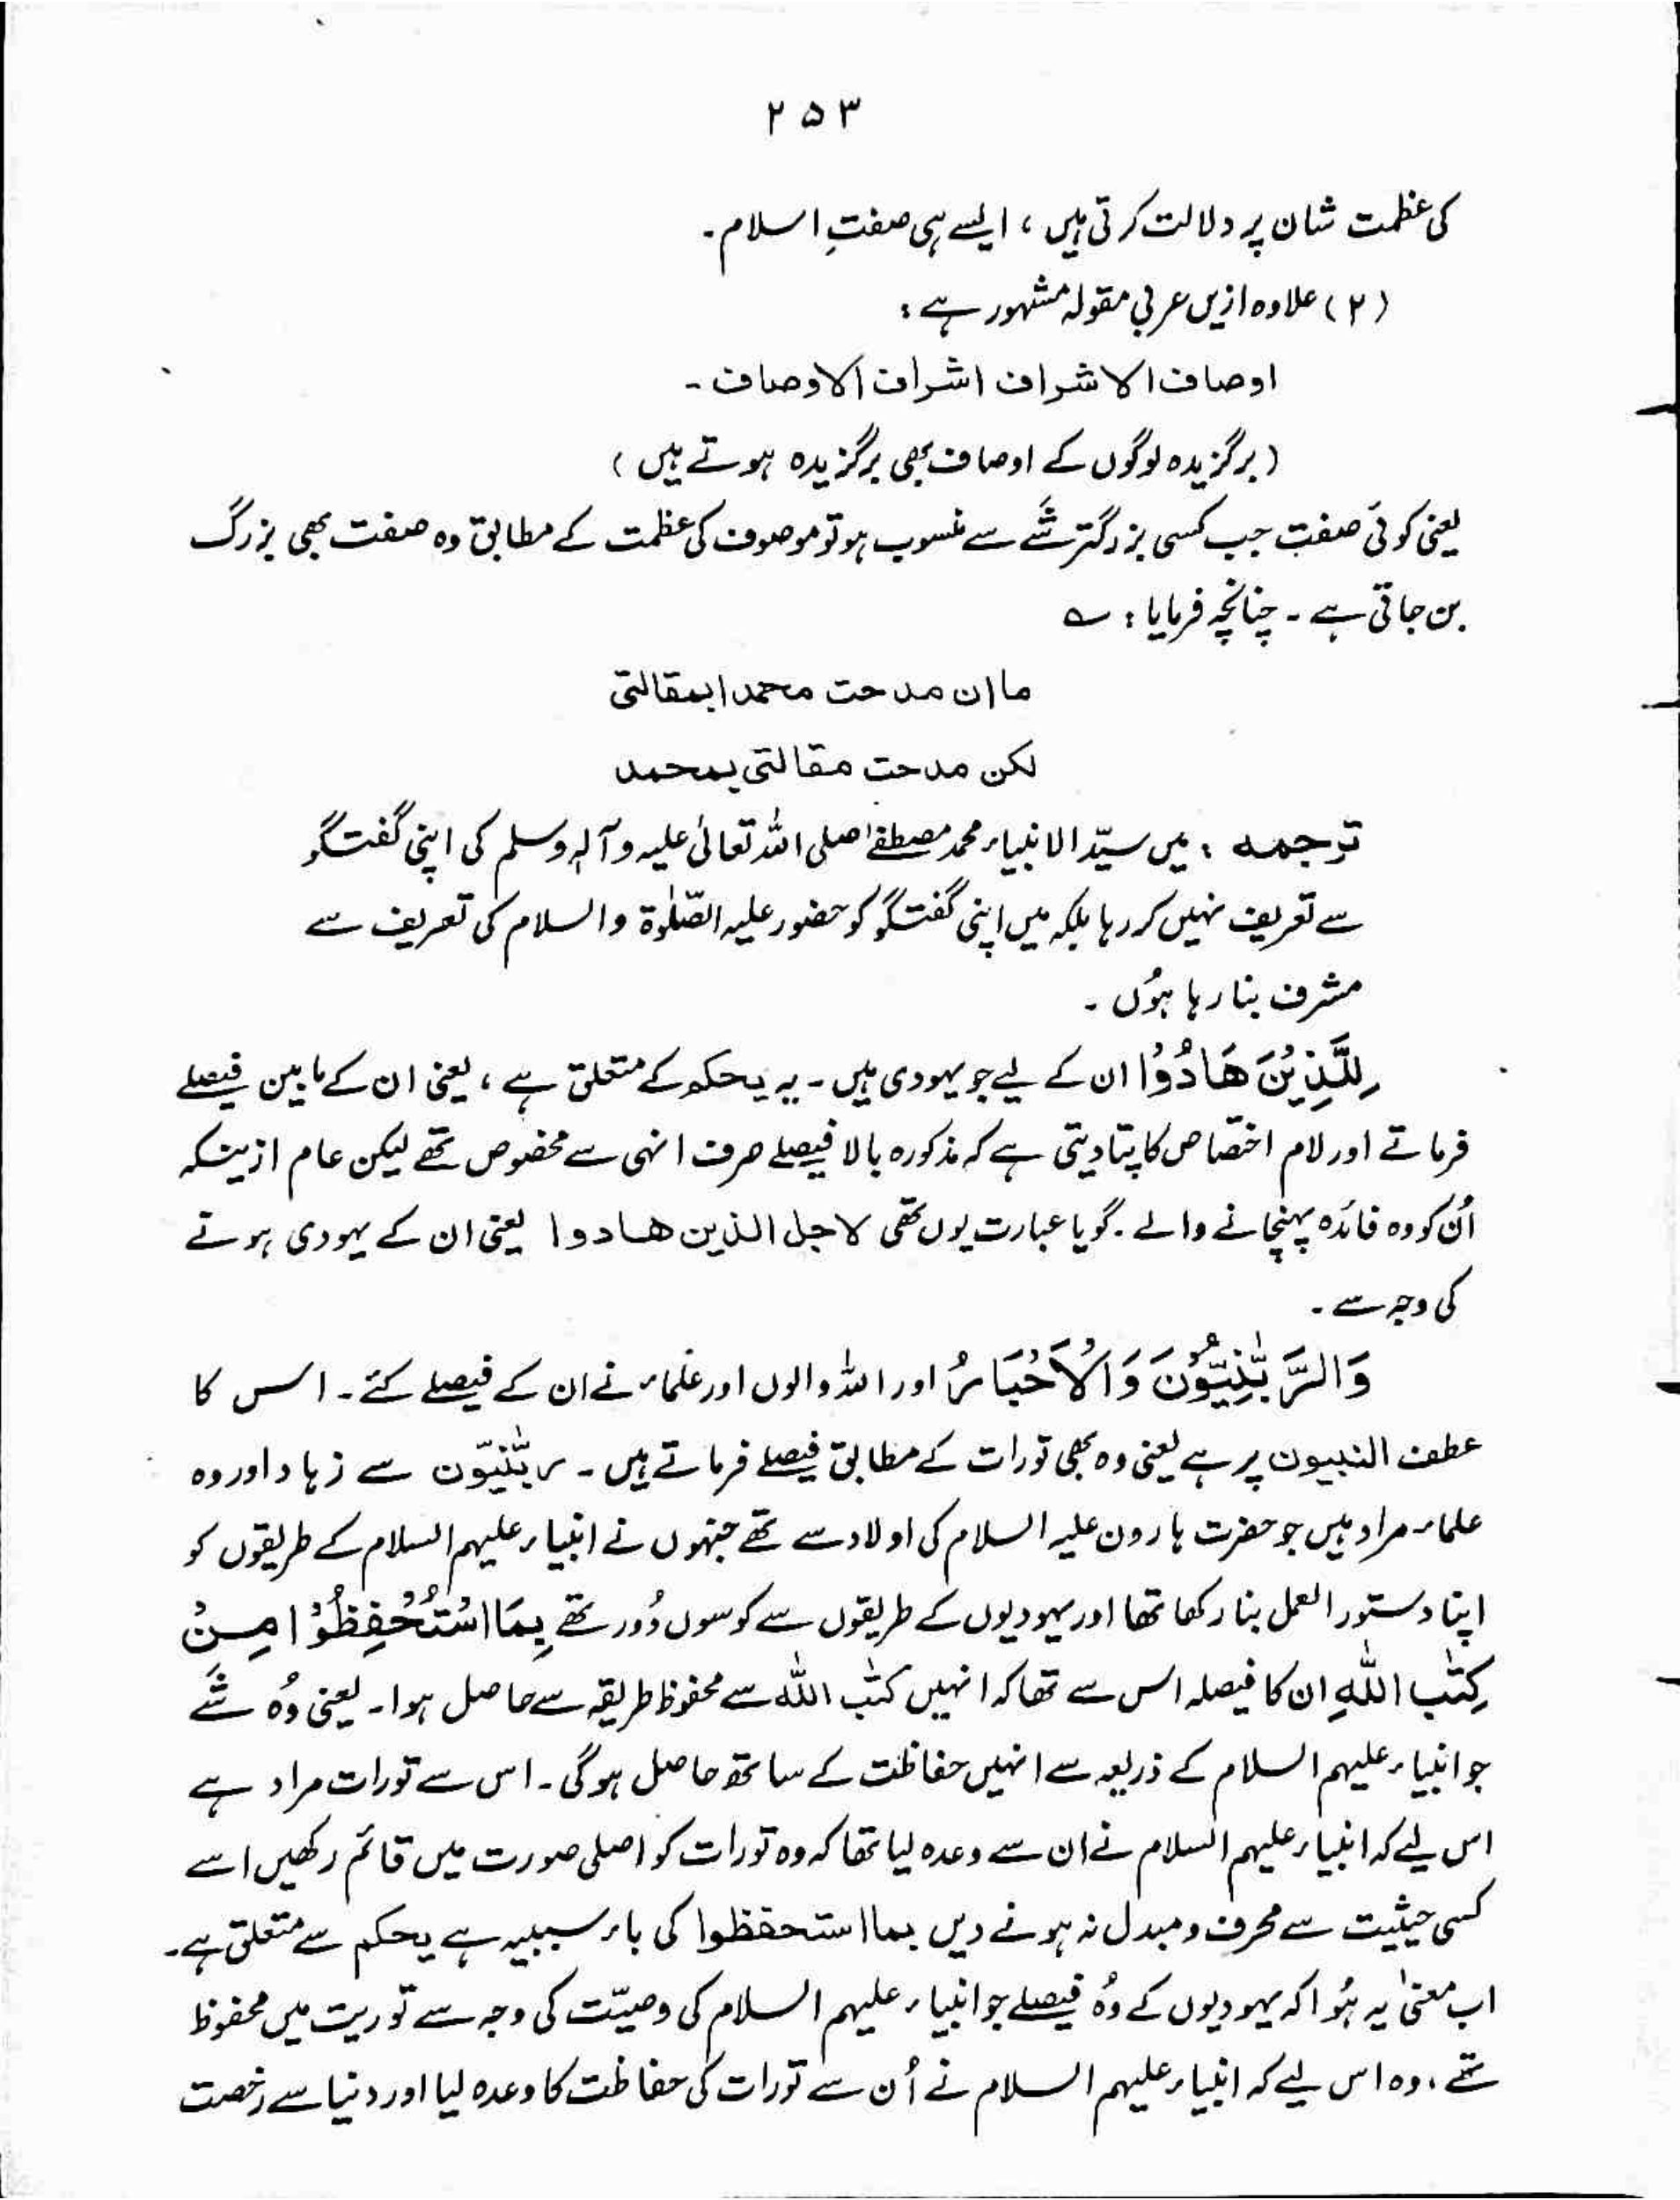 ۲۵۳
کی عظمت شان پر دلالت کرتی ہیں ، ایسے ہی صفتِ اسلام۔
(۲) علاوہ ازیں عربی مقولہ مشہور ہے :
اوصاف الاشراف اشراف الاوصاف ۔
(برگزیدہ لوگوں کے اوصاف بھی برگزیدہ ہوتے ہیں )
یعنی کوئی صفت جب کسی بزرگتر شَے سے منسوب ہو تو موصوف کی عظمت کے مطابق وہ صفت بھی بزرگ
بن جاتی ہے ۔ چنانچہ فرمایا : ؎
ما ان مدحت محمدا بمقالتی
لکن مدحت مقالتی بمحمد
ترجمہ : میں سیّد الانبیاء محمد مصطفےٰ صلی اللہ تعالیٰ علیہ وآلہٖ وسلم کی اپنی گفتگو
سے تعریف نہیں کر رہا بلکہ میں اپنی گفتگو کو حضور علیہ الصّلوٰۃ والسلام کی تعریف سے
مشرف بنا رہا ہوُں ۔
لِلَّذِیْنَ ھَادُوْا ان کے لیے جو یہودی ہیں ۔ یہ یحکم کے متعلق ہے ، یعنی ان کے مابین فیصلے
فرماتے اور لام اختصاص کا پتا دیتی ہے کہ مذکورہ بالا فیصلے صرف انہی سے مخصوص تھے لیکن عام ازینکہ
اُن کو وہ فائدہ پہنچانے والے ۔ گویا عبارت یوں تھی لاجل الذین ھادوا یعنی ان کے یہودی ہوتے
کی وجہ سے ۔
وَالرَّبّٰنِیُّوْنَ وَالْاَحْبَارُ اور اللہ والوں اور علماء نے ان کے فیصلے کئے ۔ اس کا
عطف النبیون پر ہے یعنی وہ بھی تورات کے مطابق فیصلے فرماتے ہیں ۔ ربّٰنیّون سے زہاد اور وہ
علماء مراد ہیں جو حضرت ہارون علیہ السلام کی اولاد سے تھے جنہوں نے انبیاء علیہم السلام کے طریقوں کو
اپنا دستور العمل بنا رکھا تھا اور یہودیوں کے طریقوں سے کوسوں دُور تھے بِمَا اسْتُحْفِظُوْا مِنْ
کِتٰبِ اللّٰہِ ان کا فیصلہ اس سے تھا کہ انہیں کتٰب اللہ سے محفوظ طریقہ سے حاصل ہوا ۔ یعنی وُہ شَے
جو انبیاء علیہم السلام کے ذریعہ سے انہیں حفاظت کے ساتھ حاصل ہوگی ۔ اس سے تورات مراد ہے
اس لیے کہ انبیاء علیہم السلام نے ان سے وعدہ لیا تھا کہ وہ تورات کو اصلی صورت میں قائم رکھیں اسے
کسی حیثیت سے محرف و مبدل نہ ہونے دیں بما استحفظوا کی باء سببیہ ہے یحکم سے متعلق ہے ۔
اب معنیٰ یہ ہُوا کہ یہودیوں کے وُہ فیصلے جو انبیاء علیہم السلام کی وصیّت کی وجہ سے توریت میں محفوظ
تھے ، وہ اس لیے کہ انبیاء علیہم السلام نے اُن سے تورات کی حفاظت کا وعدہ لیا اور دنیا سے رخصت